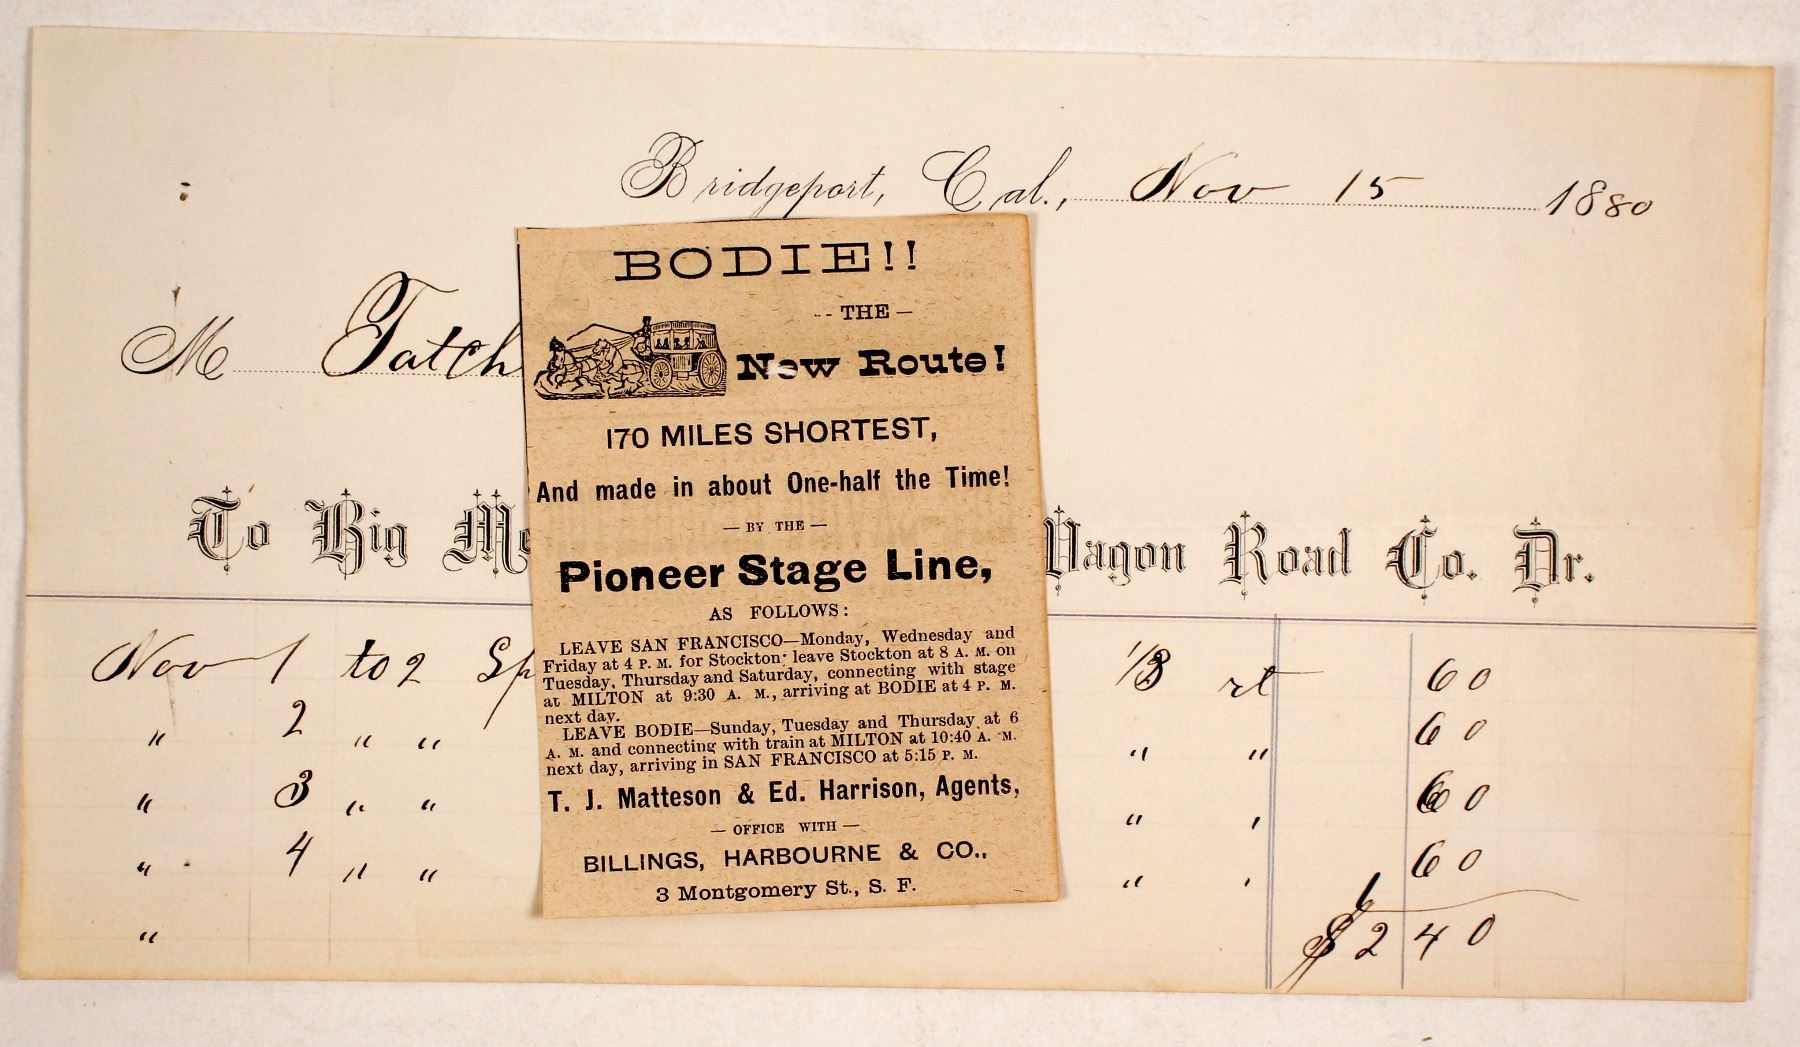 Bridgeport, Cal., Nov 15 1880
M Tatch
To Big Me Wagon Road Co. Dr.
Nov 1 to 2 Sp 1/3 rt 60
" 2 " " " " 60
" 3 " " " " 60
" 4 " " " " 60
"
$2 40
BODIE!!
-- THE —
New Route!
170 MILES SHORTEST,
And made in about One-half the Time!
— BY THE —
Pioneer Stage Line,
AS FOLLOWS:
LEAVE SAN FRANCISCO—Monday, Wednesday and
Friday at 4 P. M. for Stockton; leave Stockton at 8 A. M. on
Tuesday, Thursday and Saturday, connecting with stage
at MILTON at 9:30 A. M., arriving at BODIE at 4 P. M.
next day.
LEAVE BODIE—Sunday, Tuesday and Thursday at 6
A. M. and connecting with train at MILTON at 10:40 A. M.
next day, arriving in SAN FRANCISCO at 5:15 P. M.
T. J. Matteson & Ed. Harrison, Agents,
— OFFICE WITH —
BILLINGS, HARBOURNE & CO.,
3 Montgomery St., S. F.